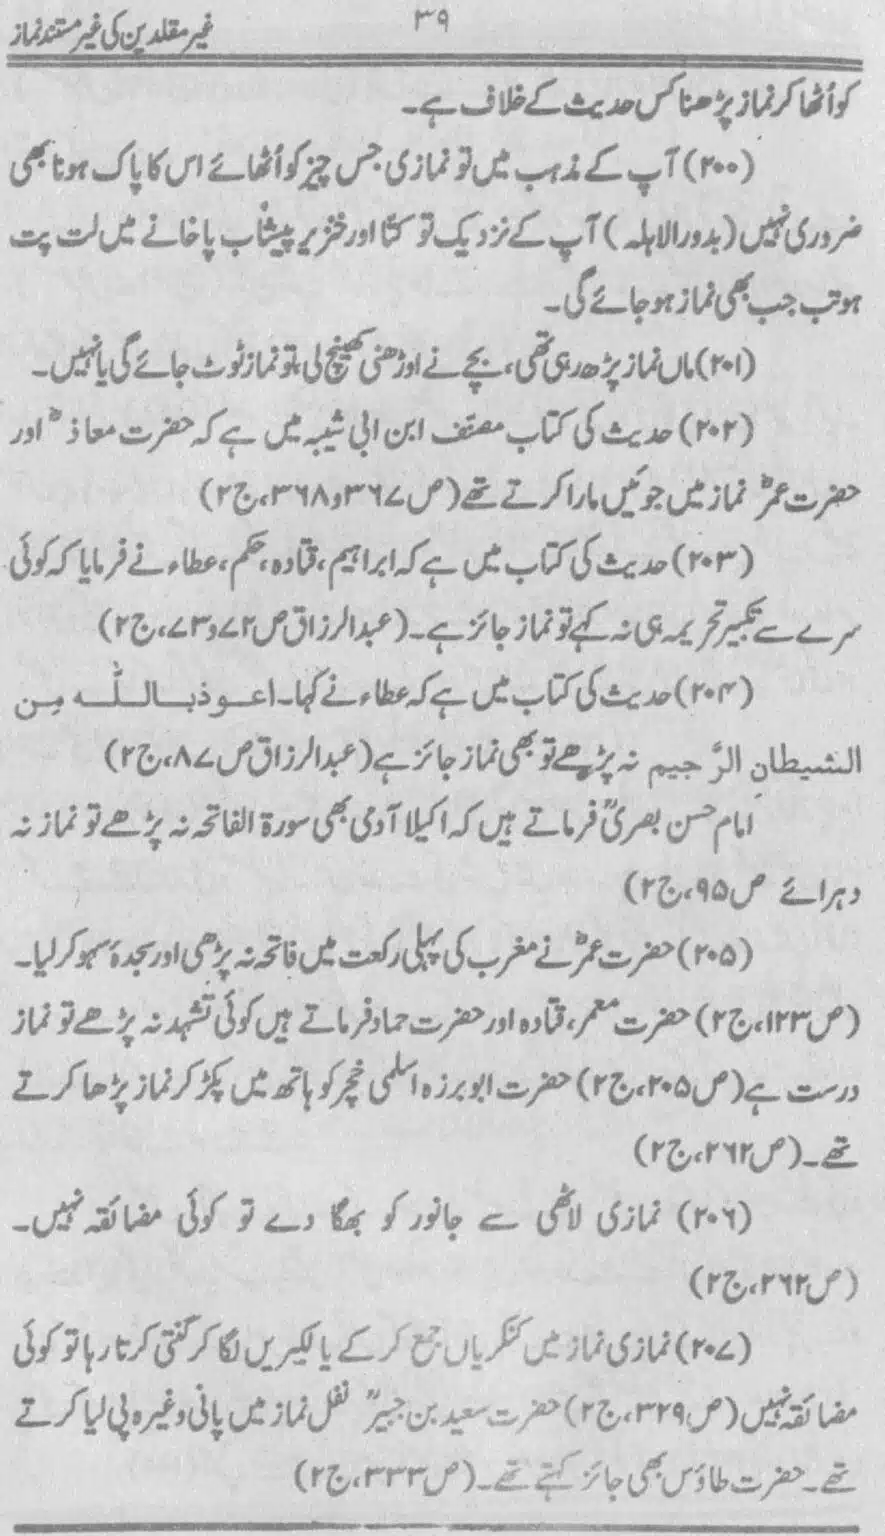 ۳۹
غیر مقلدین کی غیر مستند نماز
کو اُٹھا کر نماز پڑھنا کس حدیث کے خلاف ہے۔
(۲۰۰) آپ کے مذہب میں تو نمازی جس چیز کو اُٹھائے اس کا پاک ہونا بھی
ضروری نہیں (بدور الاہلہ) آپ کے نزدیک تو کتا اور خنزیر پیشاب پاخانے میں لت پت
ہو تب جب بھی نماز ہو جائے گی۔
(۲۰۱) ماں نماز پڑھ رہی تھی، بچے نے اوڑھنی کھینچ لی، تو نماز ٹوٹ جائے گی یا نہیں۔
(۲۰۲) حدیث کی کتاب مصنف ابن ابی شیبہ میں ہے کہ حضرت معاذؓ اور
حضرت عمرؓ نماز میں جوئیں مارا کرتے تھے (ص ۳۶۷ و ۳۶۸، ج ۲)
(۲۰۳) حدیث کی کتاب میں ہے کہ ابراہیم، قتادہ، حکم، عطاء نے فرمایا کہ کوئی
سرے سے تکبیر تحریمہ ہی نہ کہے تو نماز جائز ہے۔ (عبدالرزاق ص ۷۲ و ۷۳، ج ۲)
(۲۰۴) حدیث کی کتاب میں ہے کہ عطاء نے کہا۔ اعوذ باللّٰہ مِن
الشیطانِ الرَّجیم نہ پڑھے تو بھی نماز جائز ہے (عبدالرزاق ص ۸۷، ج ۲)
امام حسن بصریؒ فرماتے ہیں کہ اکیلا آدمی بھی سورۃ الفاتحہ نہ پڑھے تو نماز نہ
دہرائے ص ۹۵، ج ۲)
(۲۰۵) حضرت عمرؓ نے مغرب کی پہلی رکعت میں فاتحہ نہ پڑھی اور سجدۂ سہو کر لیا۔
(ص ۱۲۳، ج ۲) حضرت معمر، قتادہ اور حضرت حماد فرماتے ہیں کوئی تشہد نہ پڑھے تو نماز
درست ہے (ص ۲۰۵، ج ۲) حضرت ابو برزہ اسلمی خچر کو ہاتھ میں پکڑ کر نماز پڑھا کرتے
تھے۔ (ص ۲۶۲، ج ۲)
(۲۰۶) نمازی لاٹھی سے جانور کو بھگا دے تو کوئی مضائقہ نہیں۔
(ص ۲۶۲، ج ۲)
(۲۰۷) نمازی نماز میں کنکریاں جمع کر کے یا لکیریں لگا کر گنتی کرتا رہا تو کوئی
مضائقہ نہیں (ص ۳۲۹، ج ۲) حضرت سعید بن جبیرؒ نفل نماز میں پانی وغیرہ پی لیا کرتے
تھے۔ حضرت طاؤس بھی جائز کہتے تھے۔ (ص ۳۳۳، ج ۲)